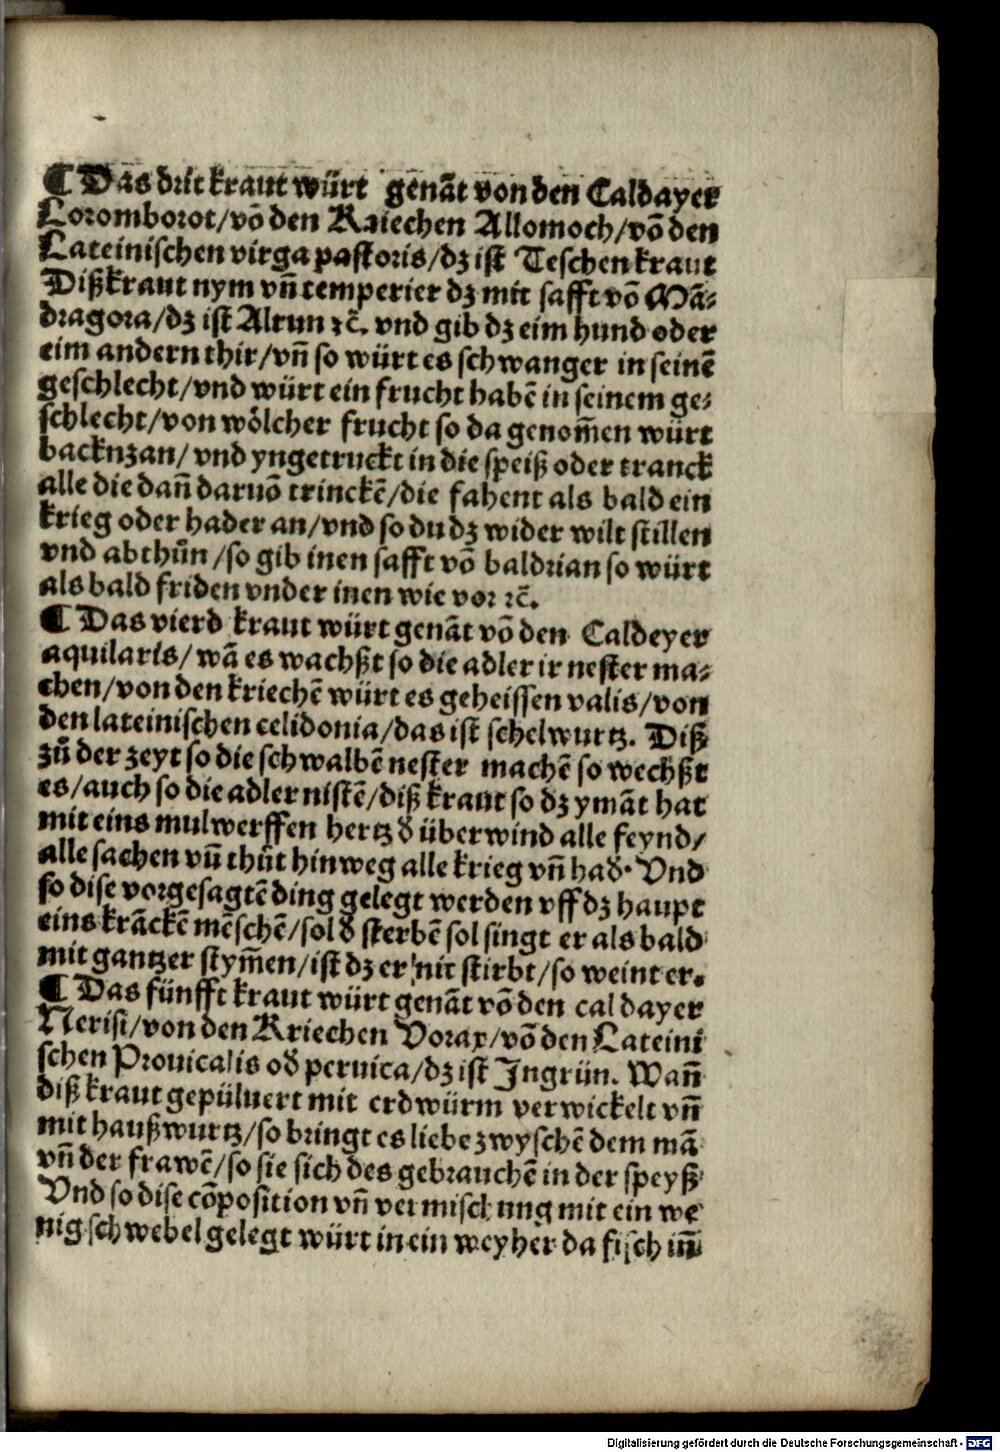 ¶ Das drit kraut würt genãt von den Caldayer
Loromborot/võ den Kriechen Allomoch/võ den
Lateinischen virga pastoris/dz ist Teschenkraut
Diß kraut nym vñ temperier dz mit safft võ Mã⸗
dragora/dz ist Alrun ꝛc̃. vnd gib dz eim hund oder
eim andern thir/vñ so würt es schwanger in seinẽ
geschlecht/vnd würt ein frucht habẽ in seinem ge⸗
schlecht/von woͤlcher frucht so da genom̃en würt
backnzan/ vnd yngetruckt in die speiß oder tranck
alle die dañ daruõ trinckẽ/die fahent als bald ein
krieg oder hader an/vnd so du dz wider wilt stillen
vnd abthůn/so gib inen safft võ baldrian so würt
als bald friden vnder inen wie vor ꝛc̃.
¶ Das vierd kraut würt genãt võ den Caldeyer
aquilaris/ wã es wachßt so die adler ir nester ma⸗
chen/von den kriechẽ würt es geheissen valis/von
den lateinischen celidonia/das ist schelwurtz. Diß
zů der zeyt so die schwalbẽ nester machẽ so wechßt
es/auch so die adler nistẽ/diß kraut so dz ymãt hat
mit eins mulwerffen hertz ď überwind alle feynd/
alle sachen vñ thůt hinweg alle krieg vñ haď. Vnd
so dise vorgesagtẽ ding gelegt werden vff dz haupt
eins krãckẽ mẽschẽ/sol ď sterbẽ sol singt er als bald
mit gantzer stym̃en/ist dz er nit stirbt/so weint er.
¶ Das fünfft kraut würt genãt võ den caldayer
Nerisi/von den Kriechen Vorax/võ den Lateini
schen Prouicalis oď peruica/dz ist Jngrün. Wañ
diß kraut gepüluert mit erdwürm verwickelt vñ
mit haußwurtz/so bringt es liebe zwyschẽ dem mã
vñ der frawẽ/so sie sich des gebrauchẽ in der speyß
Vnd so dise cõposition vñ vermischung mit ein we
nig schwebel gelegt würt in ein weyher da fisch iñ
Digitalisierung gefördert durch die Deutsche Forschungsgemeinschaft - DFG